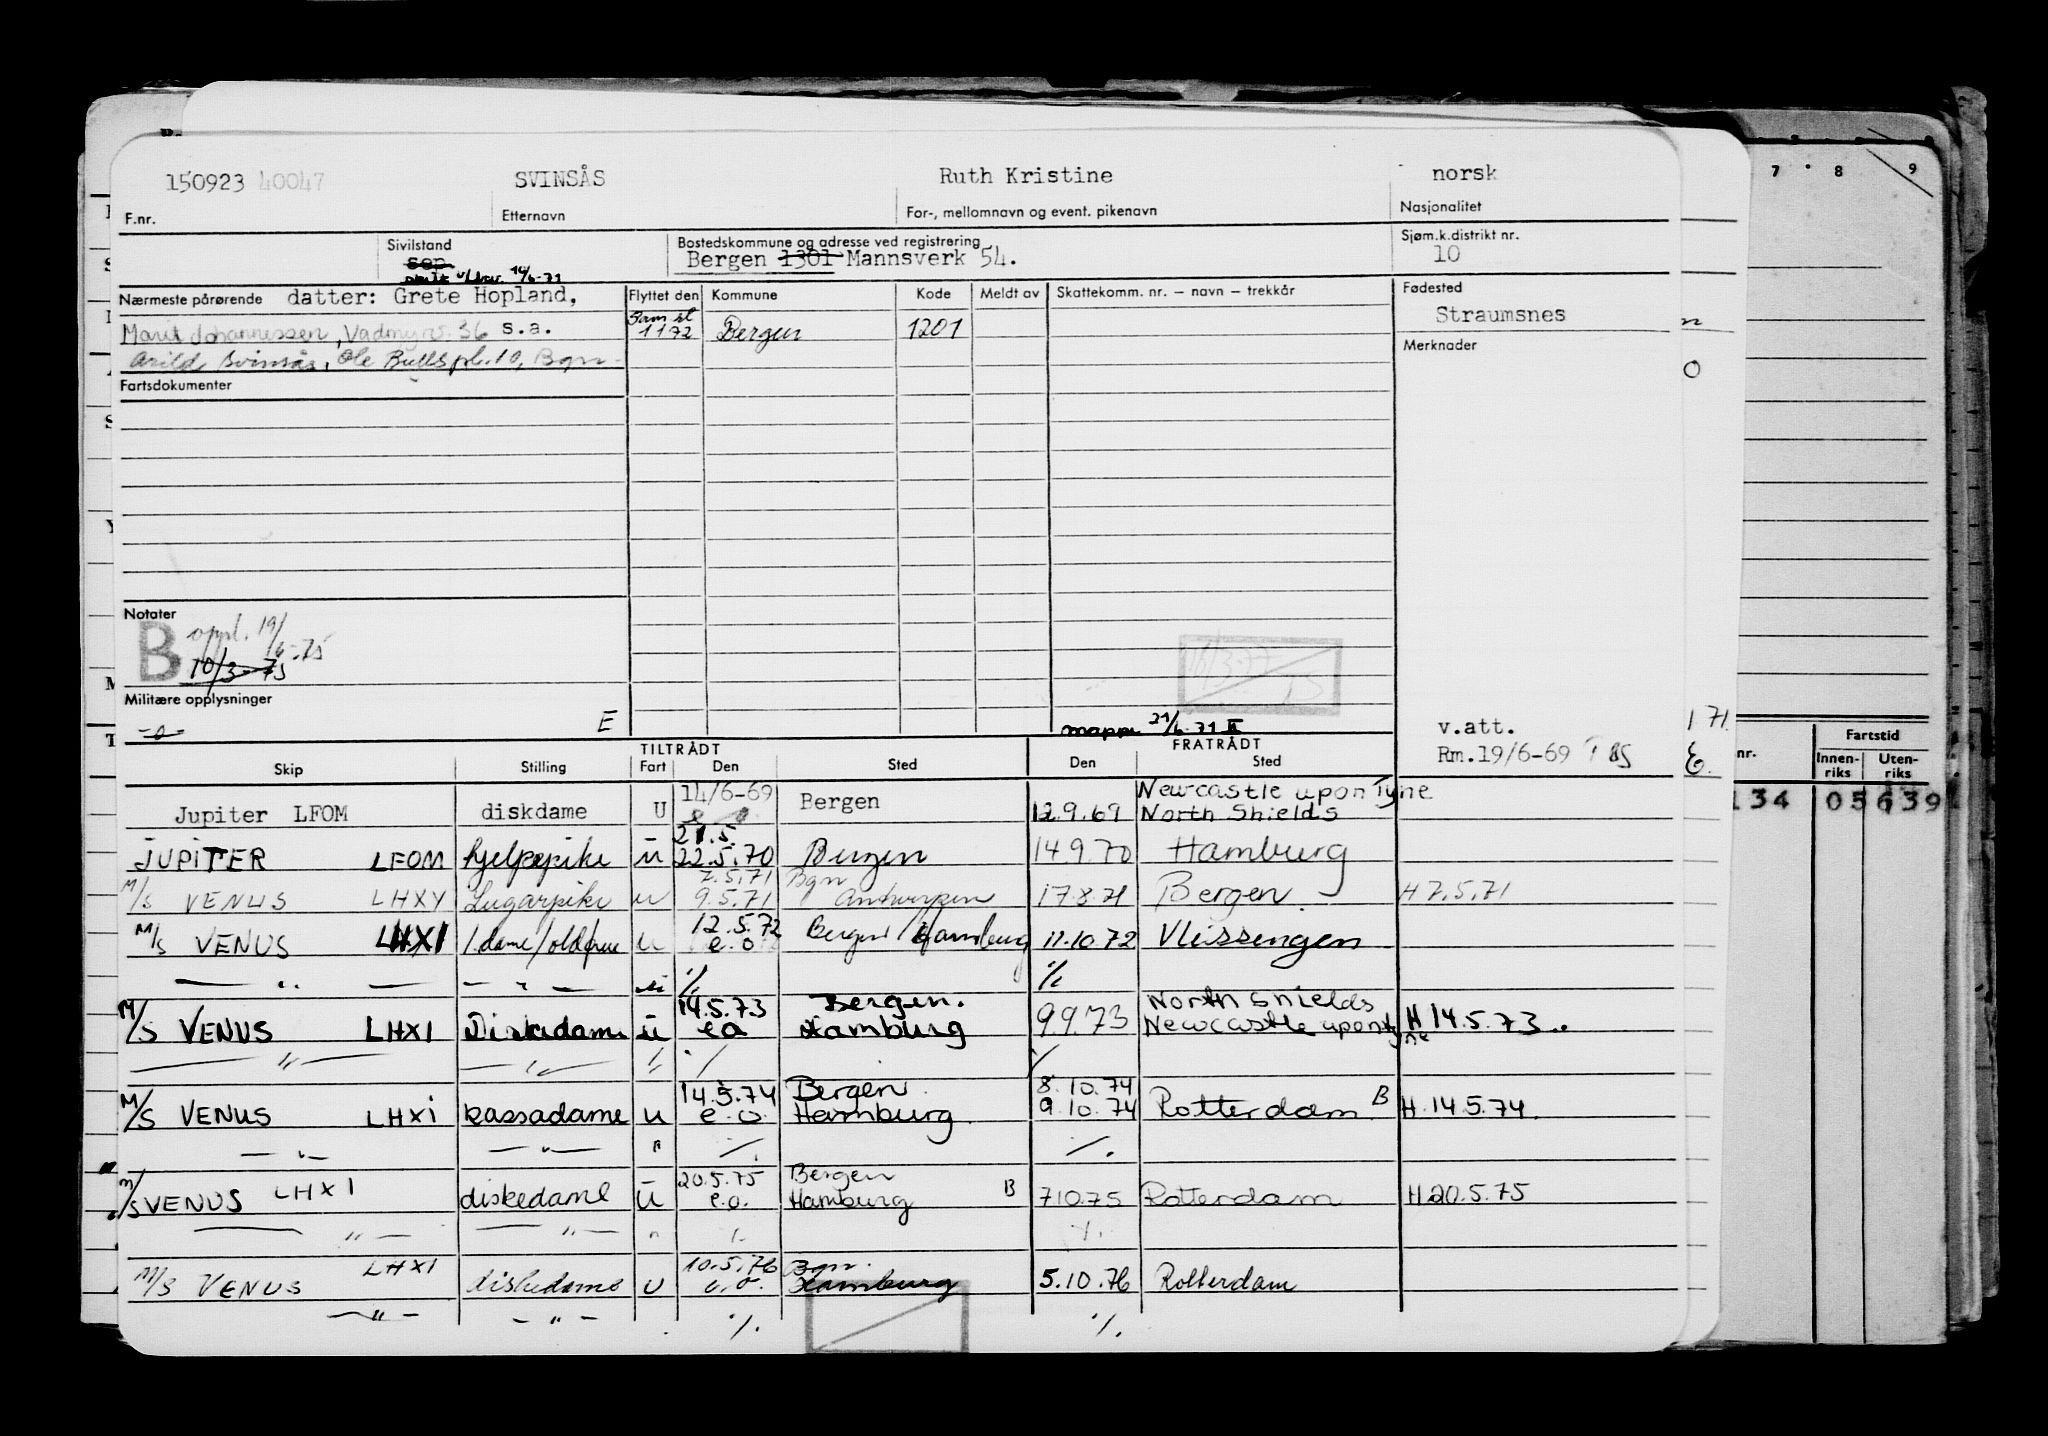 150923 40047 SVINSÅS Ruth Kristine norsk
F.nr. Etternavn For-, mellomnavn og event. pikenavn Nasjonalitet
Sivilstand Bostedskommune og adresse ved registrering Sjøm.k.distrikt nr.
sep Bergen 1301 Mannsverk 54. 10
Nærmeste pårørende datter: Grete Hopland, Flyttet den Kommune Kode Meldt av Skattekomm. nr. – navn – trekkår Fødested
Marit Johannessen, Vadmyrv. 36 s.a. 1172 Bergen 1201 Straumsnes
Arild Svinsås, Ole Bulls pl. 10, Bgn. Merknader
Fartsdokumenter
Notater
B oppl. 19/6-75
10/3-75
Militære opplysninger
-o- E mappe 21/6-71 v.att.
TILTRÅDT FRATRÅDT Rm.19/6-69
Skip Stilling Fart Den Sted Den Sted
14/6-69 Newcastle upon Tyne
Jupiter LFOM diskdame U e.o. Bergen 12.9.69 North Shields
21.5.
JUPITER LFOM hjelpepike u 22.5.70 Bergen 14.9.70 Hamburg
7.5.71 Bgn
M/S VENUS LHXY Lugarpike u 9.5.71 Antwerpen 17.8.71 Bergen. H 7.5.71
12.5.72
M/S VENUS LHXI 1.dame/oldfrue u e.o Bergen/Hamburg 11.10.72 Vlissengen
— " — — " — " % %
14.5.73 Bergen. North Shields
M/S VENUS LHXI Diskdame u eo Hamburg 9.9.73 Newcastle upon Tyne H 14.5.73.
— " — — " — " % %
14.5.74 Bergen 8.10.74
M/S VENUS LHXI kassadame u e.o. Hamburg 9.10.74 Rotterdam B H 14.5.74.
— " — — " — " % %
20.5.75 Bergen
M/S VENUS LHXI diskedame u e.o. Hamburg B 7.10.75 Rotterdam H 20.5.75
— " — — " — " % %
10.5.76 Bgn.
M/S VENUS LHXI diskedame u e.o. Hamburg 5.10.76 Rotterdam
— " — — " — % %
7 8 9
1 71
E.
nr. Fartstid
Innenriks Utenriks
134 05639